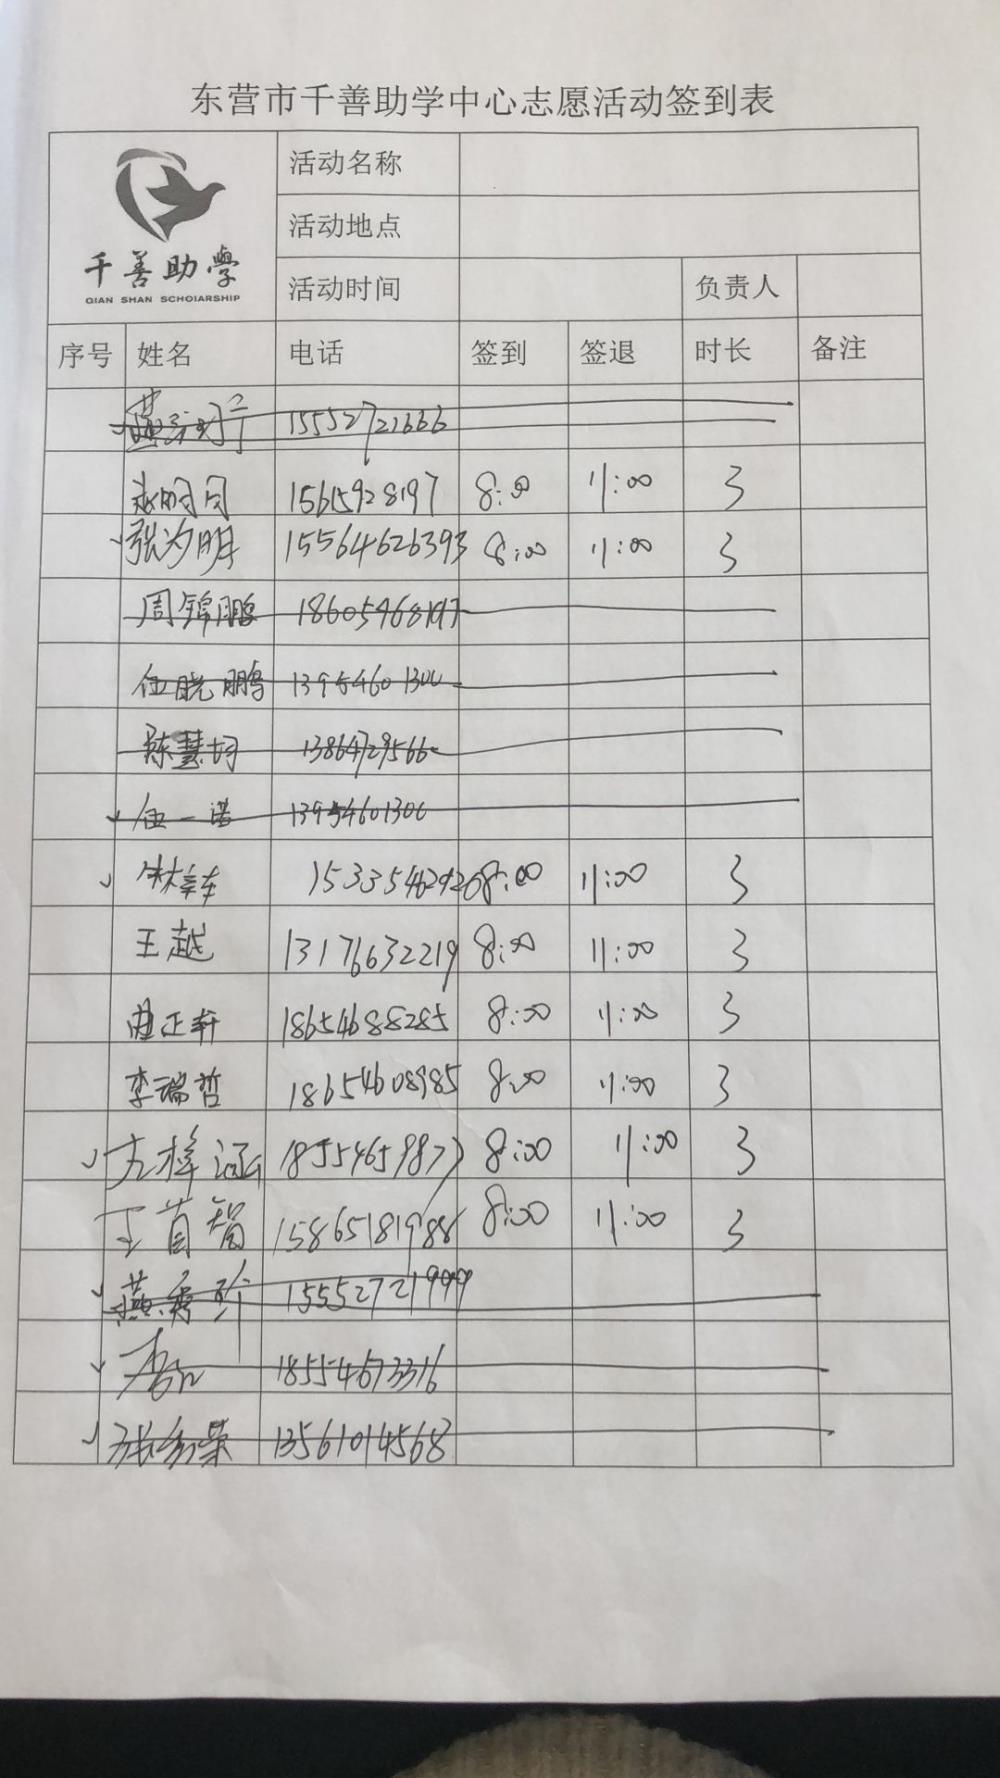 东营市千善助学中心志愿活动签到表
千善助學
QIAN SHAN SCHOIARSHIP
活动名称
活动地点
活动时间 负责人
序号 姓名 电话 签到 签退 时长 备注
15552721666
15615928197 8:00 11:00 3
张为明 15564626393 8:00 11:00 3
周锦鹏 18605468197
伍晓鹏 13954601300
陈慧均 13864729566
伍一诺 13954601300
林幸车 15335462920 8:00 11:00 3
王越 13176632219 8:00 11:00 3
曲正轩 18654688285 8:00 11:00 3
李瑞哲 18654608985 8:00 11:00 3
尤梓涵 18554659877 8:00 11:00 3
王首智 15865181988 8:00 11:00 3
燕秀珍 15552721999
18554673316
张秀荣 13561014568